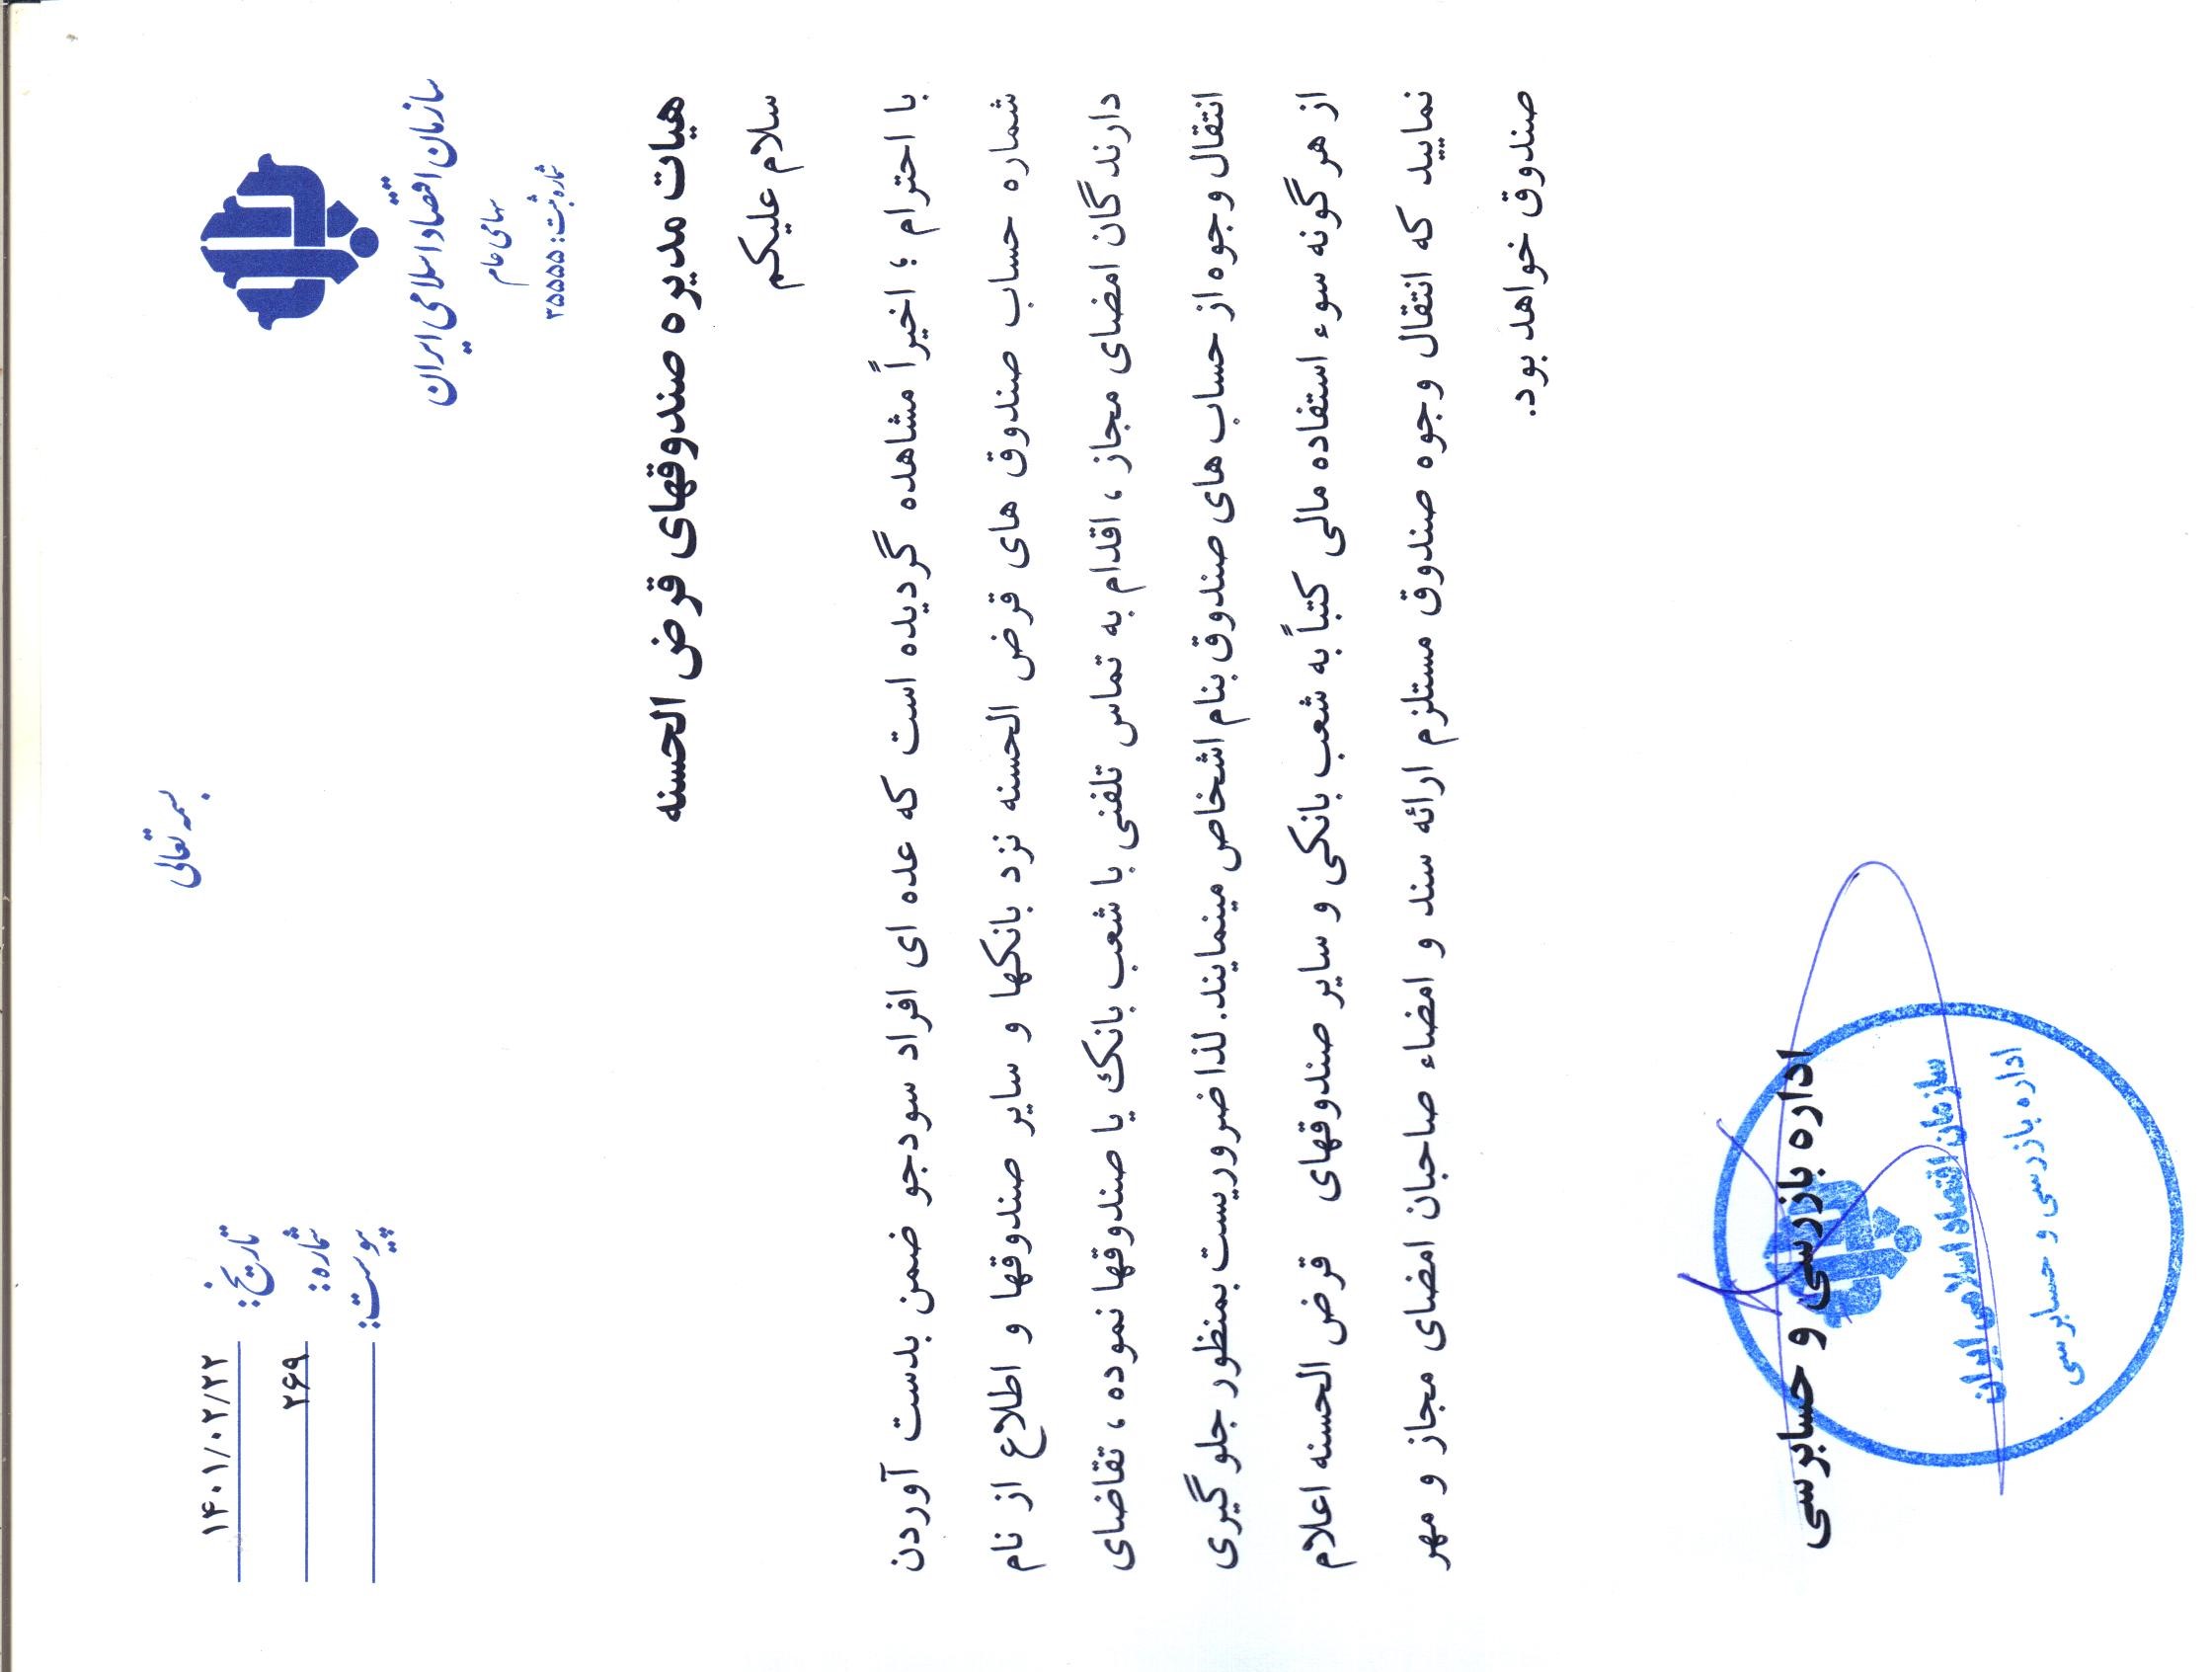 بسمه تعالی
سازمان اقتصاد اسلامی ایران
سهامی عام
شماره ثبت: ۳۵۵۵۵
تاریخ: ۱۴۰۱/۰۲/۲۲
شماره: ۲۶۹
پیوست:
هیات مدیره صندوقهای قرض الحسنه
سلام علیکم
با احترام ؛ اخیراً مشاهده گردیده است که عده ای افراد سودجو ضمن بدست آوردن
شماره حساب صندوق های قرض الحسنه نزد بانکها و سایر صندوقها و اطلاع از نام
دارندگان امضای مجاز ، اقدام به تماس تلفنی با شعب بانک یا صندوقها نموده ، تقاضای
انتقال وجوه از حساب های صندوق بنام اشخاص مینمایند. لذا ضروریست بمنظور جلوگیری
از هر گونه سوء استفاده مالی کتباً به شعب بانکی و سایر صندوقهای قرض الحسنه اعلام
نمایید که انتقال وجوه صندوق مستلزم ارائه سند و امضاء صاحبان امضای مجاز و مهر
صندوق خواهد بود.
اداره بازرسی و حسابرسی
سازمان اقتصاد اسلامی ایران
اداره بازرسی و حسابرسی